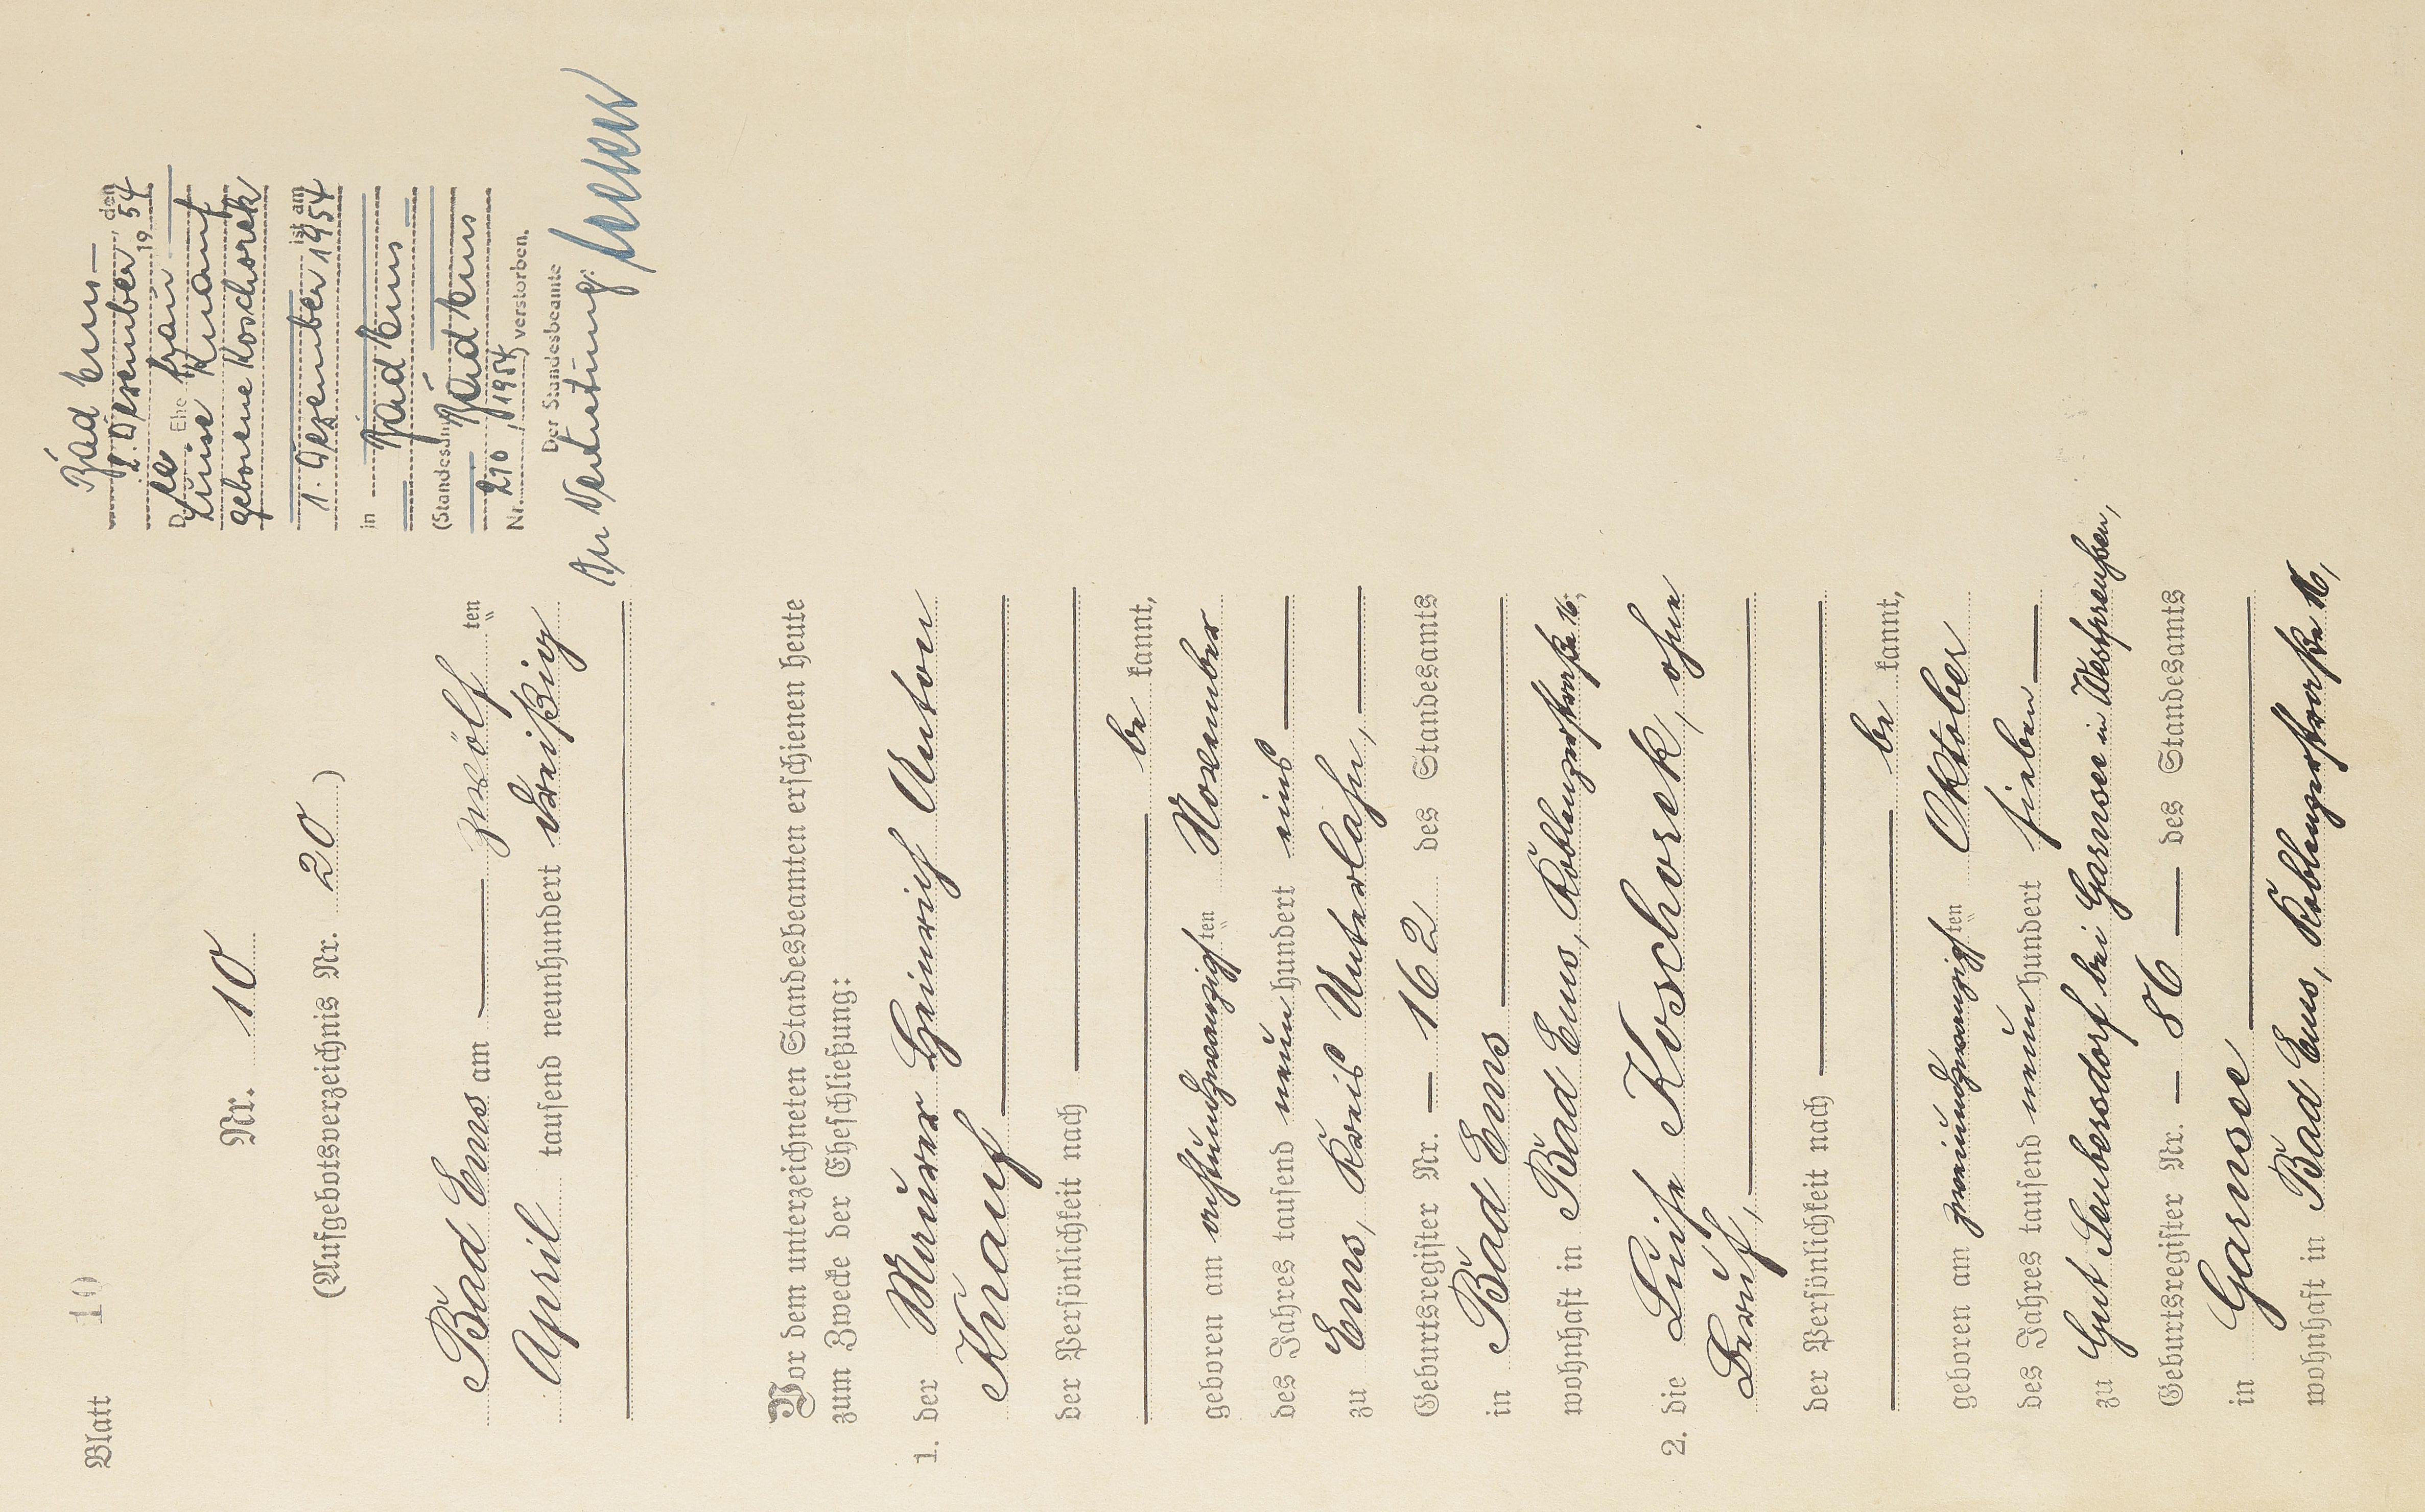 Blatt 10
Nr. 10
(Aufgebotsverzeichnis Nr. 20)
Bad Ems am — zwölf ten
April tausend neunhundert dreißig
Vor dem unterzeichneten Standesbeamten erschienen heute
zum Zwecke der Eheschließung:
1. der Maurer Heinrich Anton
Knauf
der Persönlichkeit nach
be kannt,
geboren am achtundzwanzigsten November
des Jahres tausend neunhundert eins
zu Ems, Kreis Unterlahn,
Geburtsregister Nr. — 162 des Standesamts
in Bad Ems
wohnhaft in Bad Ems, Koblenzerstraße 16,
2. die Luise Koschorek, ohne
Beruf,
der Persönlichkeit nach
be kannt,
geboren am zweiundzwanzigsten Oktober
des Jahres tausend neunhundert sieben
zu Gut Seubersdorf bei Garnsee in Westpreußen,
Geburtsregister Nr. — 86 — des Standesamts
in Garnsee
wohnhaft in Bad Ems, Koblenzerstraße 16,
Bad Ems, den
2. Dezember 1954
Die Ehefrau
Luise Knauf
geborene Koschorek
ist am
1. Dezember 1954
in Bad Ems
(Standesamt Bad Ems
Nr. 210/1954) verstorben.
Der Standesbeamte
In Vertretung: